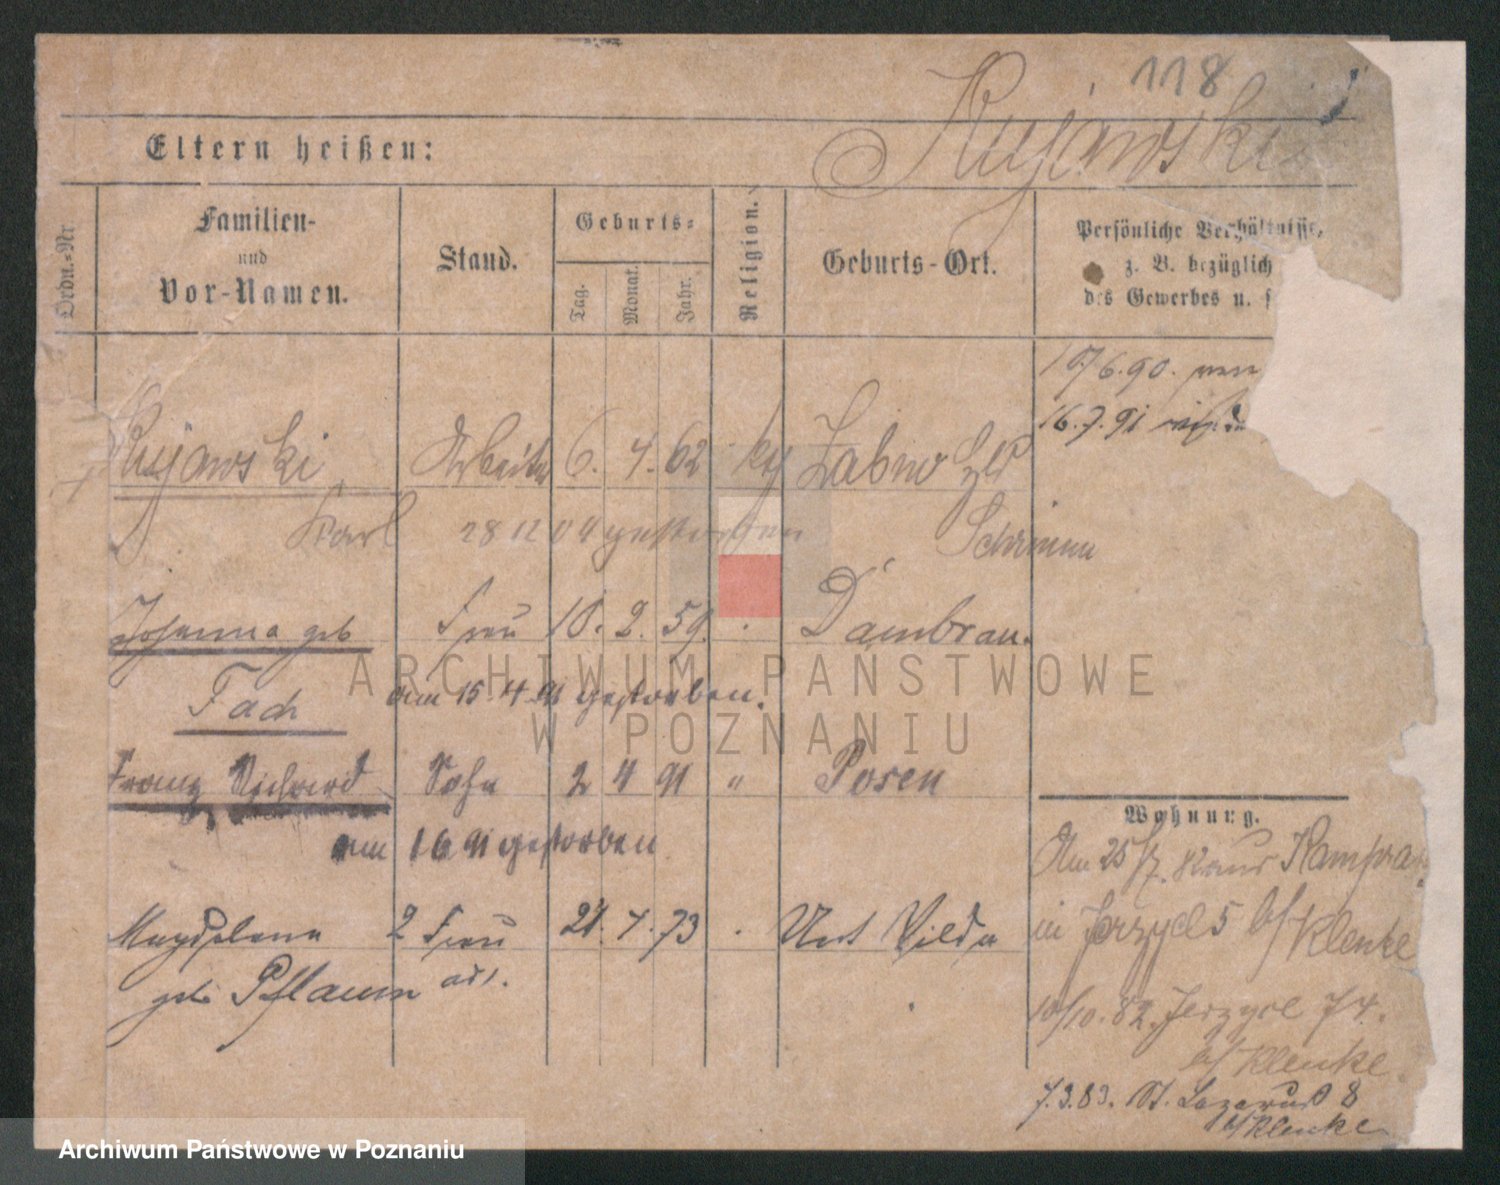 118
Kujawski
Eltern heißen:
Ordn.-Nr
Familien-
und
Vor-Namen.
Stand.
Geburts-
Tag.
Monat.
Jahr.
Religion.
Geburts-Ort.
Persönliche Verhältnisse,
z. B. bezüglich
des Gewerbes u. s
6.90.
16.7.91
Kujawski Arbeiter 6. 62
Karl 28 12 04 gestorben Schrimm
Johanna geb Frau 2. 59. Dambrau.
Fach am 15.4.91 gestorben.
Franz Richard Sohn 2 4 91 " Posen
am 16 91 gestorben
Magdalena 2 Frau 21. 7. 73 Unt Wilda
geb Pflaum
Wohnung.
Am 25/7.
in Jerzyce 5 b/Klenke
10/10.82. Jerzyce 74.
b/Klenke.
7.3.83. St. Lazarus 8
b/Klenke
ARCHIWUM PAŃSTWOWE
W POZNANIU
Archiwum Państwowe w Poznaniu